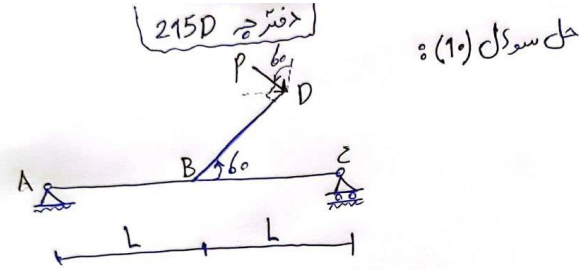 دفترچه 215D
حل سوال (10):
P
60
D
B
60
A
C
L
L